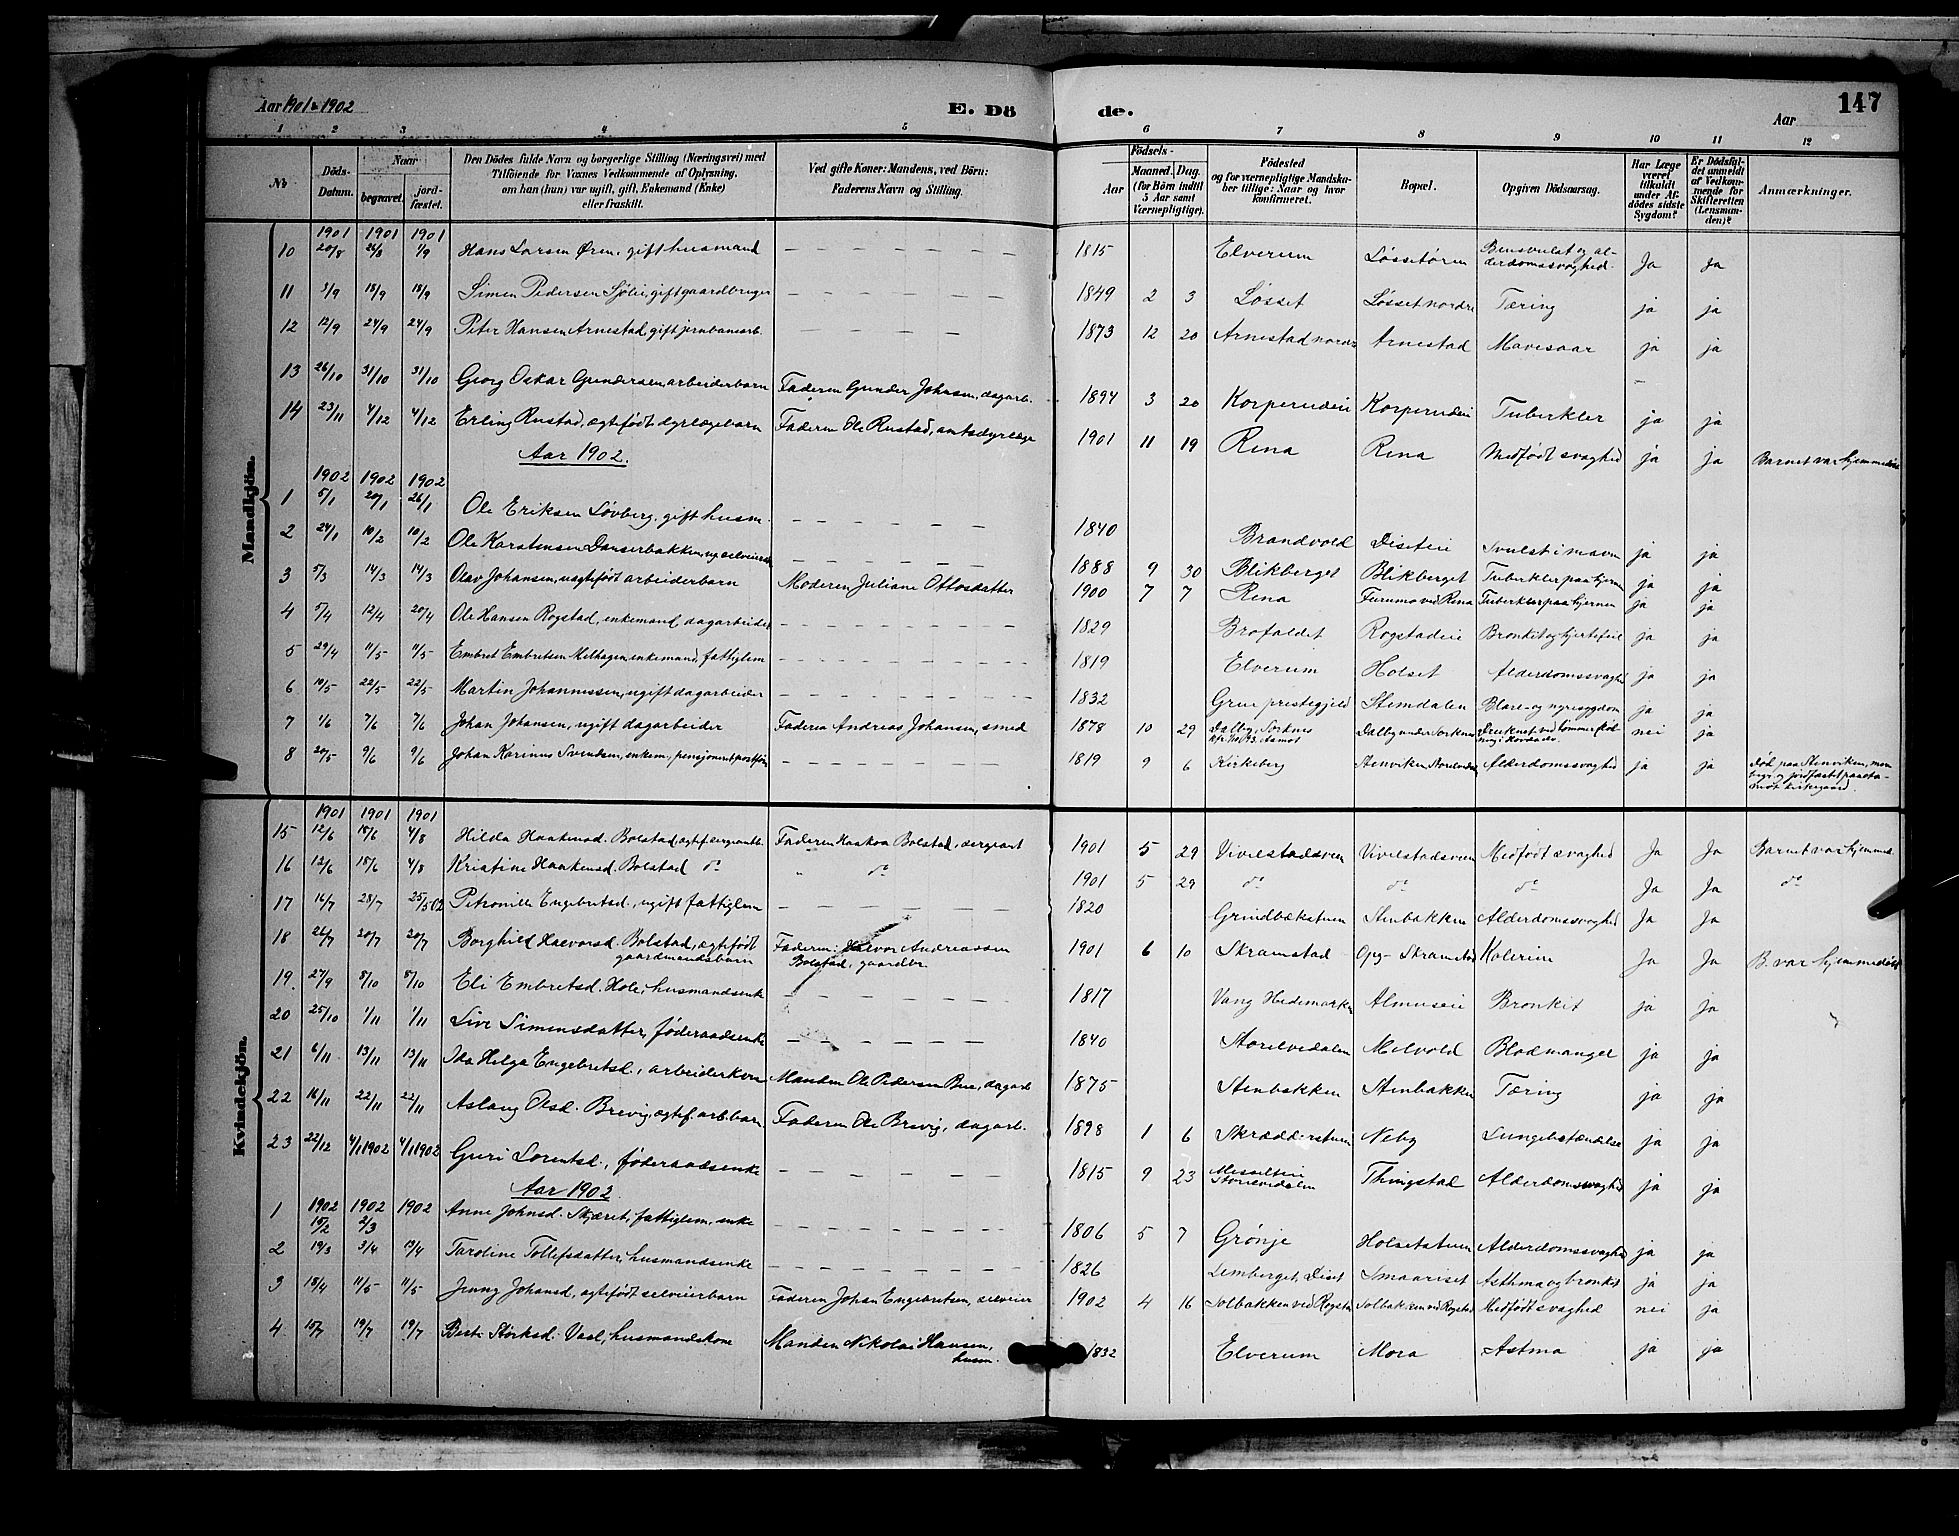 Aar 1901 & 1902
E. Dö
de.
Aar
147
1 2 3 4 5 6 7 8 9 10 11 12
No
Döds-Datum.
Naar
begravet.
jord-fæstet.
Den Dödes fulde Navn og borgerlige Stilling (Næringsvei) med
Tilföiende for Voxnes Vedkommende af Oplysning,
om han (hun) var ugift, gift, Enkemand (Enke)
eller fraskilt.
Ved gifte Koner: Mandens, ved Börn:
Faderens Navn og Stilling.
Födsels-
Aar
Maaned. Dag.
(for Börn indtil
5 Aar samt
Værnepligtige).
Födested
og for værnepligtige Mandska-
ber tillige: Naar og hvor
konfirmeret.
Bopæl.
Opgiven Dödsaarsag.
Har Læge
været
tilkaldt
under Af-
dödes sidste
Sygdom?
Er Dödsfal-
det anmeldt
af Vedkom-
mende for
Skifteretten
(Lensman-
den)?
Anmærkninger.
Mandkjön.
1901 1901 1901
10 20/8 26/8 1/9 Hans Larsen Øren, gift husmand — — — 1815 Elverum Løssetøren Bensvulst og al-
derdomssvaghed. Ja Ja
11 3/9 18/9 18/9 Simen Pedersen Sjølie, gift gaardbruger — — — 1849 2 3 Løsset Løsset nordre Tæring ja ja
12 12/9 24/9 24/9 Peter Hansen Arnestad, gift jernbanearb. — — — 1873 12 20 Arnestad nordr Arnestad Mavesaar ja ja
13 26/10 31/10 31/10 Georg Oskar Gundersen arbeiderbarn Faderen Gunder Johnsen, dagarb. 1894 3 20 Korperudeie Korperudeie Tuberkler ja ja
14 23/11 4/12 4/12 Erling Rustad, ægtefødt dyrlægebarn Faderen Ole Rustad, amtsdyrlæge 1901 11 19 Rena Rena Medfødt svaghed ja Ja Barnet var hjemmedøbt
Aar 1902.
1902 1902 1902
1 5/1 20/1 26/1 Ole Eriksen Løvberg, gift husm. — — — 1840 Brandvold Diseteie Svulst i maven ja ja
2 24/1 10/2 10/2 Ole Karstensen Danserbakken, ug. selveiers — — — 1888 9 30 Blikberget Blikberget Tuberkler paa hjernen ja ja
3 5/3 14/3 14/3 Olav Johansen, uægtefødt arbeiderbarn Moderen Juliane Ottosdatter 1900 7 7 Rena Furumo ved Rena Tuberkler paa hjernen ja ja
4 5/4 12/4 20/4 Ole Hansen Rogstad, enkemand, dagarbeider — — — 1829 Brofaldet Rogstadeie Bronkit og hjertefeil ja ja
5 29/4 11/5 11/5 Embret Embretsen Melhagen enkemand, fattiglem — — — 1819 Elverum Holset Alderdomssvaghed ja ja
6 10/5 22/5 22/5 Martin Johannessen, ugift dagarbeider — — — 1832 Grue prestegjeld Stemdalen Blære- og nyresygdom ja ja
7 1/6 7/6 7/6 Johan Johansen, ugift dagarbeider Faderen Andreas Johansen, smed 1878 10 29 Dalby, Sorknes
Dalby under Sorknes Druknet ved tømmerflød-
ning nei ja
8 20/5 9/6 9/6 Johan Karinus Svendsen, enkem., pensjoneret postfører — — — 1819 9 6 Kirkeberg Stenviken Storelvedalen Alderdomssvaghed ja ja Død paa Stenviken, men
begr. og jordfæstet paa Aa-
mot kirkegaard.
Kvindekjön.
1901 1901 1901
15 12/6 18/6 4/8 Hilda Haakensd. Bolstad, ægtef. sergeantb. Faderen Haakon Bolstad, sergeant 1901 5 29 Vivelstadsveen Vivelstadsveen Medfødt svaghed Ja Ja Barnet var hjemmed.
16 12/6 18/6 4/8 Kristine Haakensd. Bolstad do " do 1901 5 29 do do do Ja Ja do
17 16/7 28/7 25/5 02 Petronille Engebretsd., ugift fattiglem — — — 1820 Grindbækstuen Stenbakken Alderdomssvaghed Ja Ja
18 26/7 20/7 20/7 Borghild Halvorsd. Bolstad, ægtefødt
gaardmandsbarn Faderen: Halvor Andreassen
Bolstad, gaardbr. 1901 6 10 Skramstad Opg- Skramstad Kolerine Ja Ja B. var hjemmedøbt
19. 27/9 8/10 8/10 Eli Embretsd. Hole, husmandsenke — — — 1817 Vang Hedemarken Almuseie Bronkit ja ja
20 25/10 1/11 1/11 Live Simensdatter, føderaadsenke — — — 1840 Storelvedalen Melvold Blodmangel ja ja
21 6/11 13/11 13/11 Ida Helga Engebretsd., arbeiderkone Manden Ole Pedersen Bue, dagarb. 1875 Stenbakken Stenbakken Tæring ja ja
22 16/11 22/11 22/11 Aslaug Olsd. Brevig, ægtef. arb.barn Faderen Ole Brevig, dagarb. 1898 1 6 Skrædderstuen Neby Lungebetændelse ja ja
23 22/12 4/1 1902 4/1 1902 Guri Lorentsd., føderaadsenke — — — 1815 9 23 Messelteie
Storelvedalen Thingstad Alderdomssvaghed ja ja
Aar 1902.
1902 1902 1902
1 15/2 2/3 Anne Johnsd. Skjæret, fattiglem, enke — — — 1806 5 7 Grønje Holsetstuen Alderdomssvaghed ja ja
2 19/3 3/4 13/4 Taroline Tollefsdatter, husmandsenke — — — 1826 Lemberget, Diset Smaariset Asthma og bronkit ja ja
3 18/4 11/5 11/5 Jenny Johansd., ægtefødt selveierbarn Faderen Johan Engebretsen, selveier 1902 4 16 Solbakken ved Rogstad Solbakken ved Rogstad Medfødt svaghed nei ja
4 15/7 19/7 19/7 Størksd. husmandskone Manden Nikolai Hansen,
husm. 1832 Elverum Mora Astma ja ja